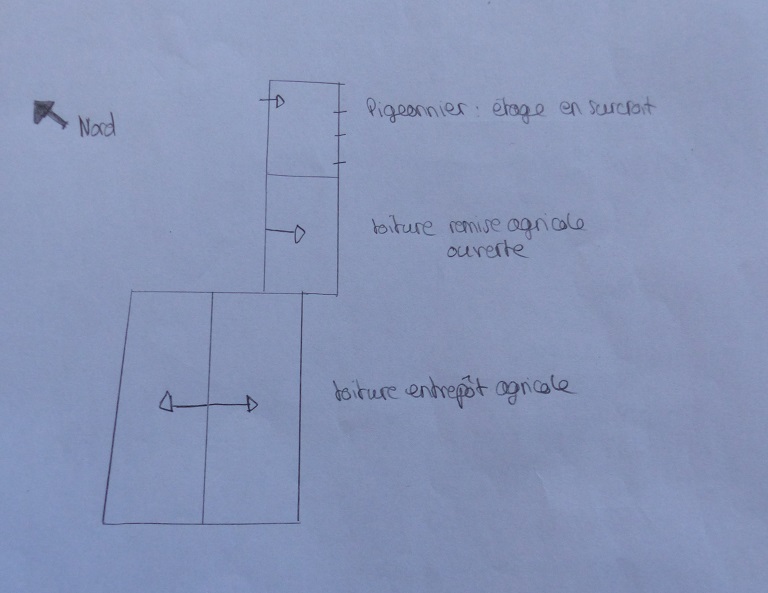 Pigeonnier : étage en surcroit
Nord
toiture remise agricole
ouverte
toiture entrepôt agricole